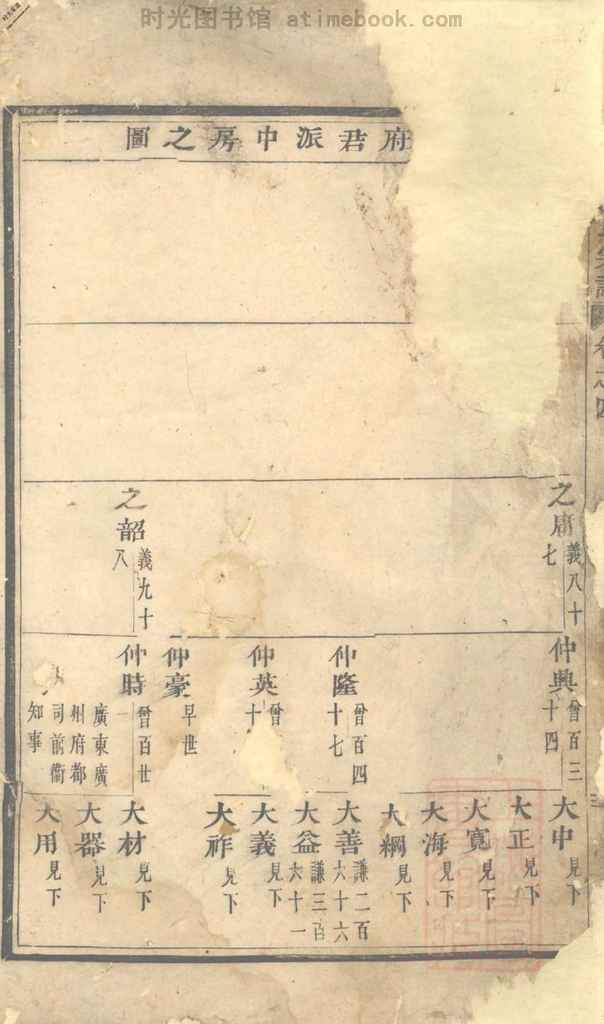 时光图书馆 atimebook.com
府君派中房之圖
卷之四
之庸 義八十七
之韶 義九十八
仲興 曾百三十四
仲隆 曾百四十七
仲英 曾十
仲豪 早世
仲時 曾百廿一
廣東廣
州府都
司前衛
知事
大中 見下
大正 見下
大寬 見下
大海 見下
大綱 見下
大善 謙二百六十六
大益 謙三百六十一
大義 見下
大祚 見下
大材 見下
大器 見下
大用 見下